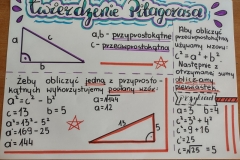 twierdzenie Pitagorasa
a
c
b
a,b - przyprostokątne
c - przeciwprostokątna
Aby obliczyć
przeciwprostokątną
używamy wzoru:
c² = a² + b².
Następnie z
otrzymanej sumy
obliczamy
pierwiastek
Żeby obliczyć jedną z przyprosto-
kątnych wykorzystujemy podany wzór:
a² = c² - b²
c = 13 b = 5
a² = 13² - 5²
a² = 169 - 25
a² = 144
a = √144
a = 12
13
5
Przykład
c² = 3² + 4²
c² = 9 + 16
c² = 25
c = √25 = 5